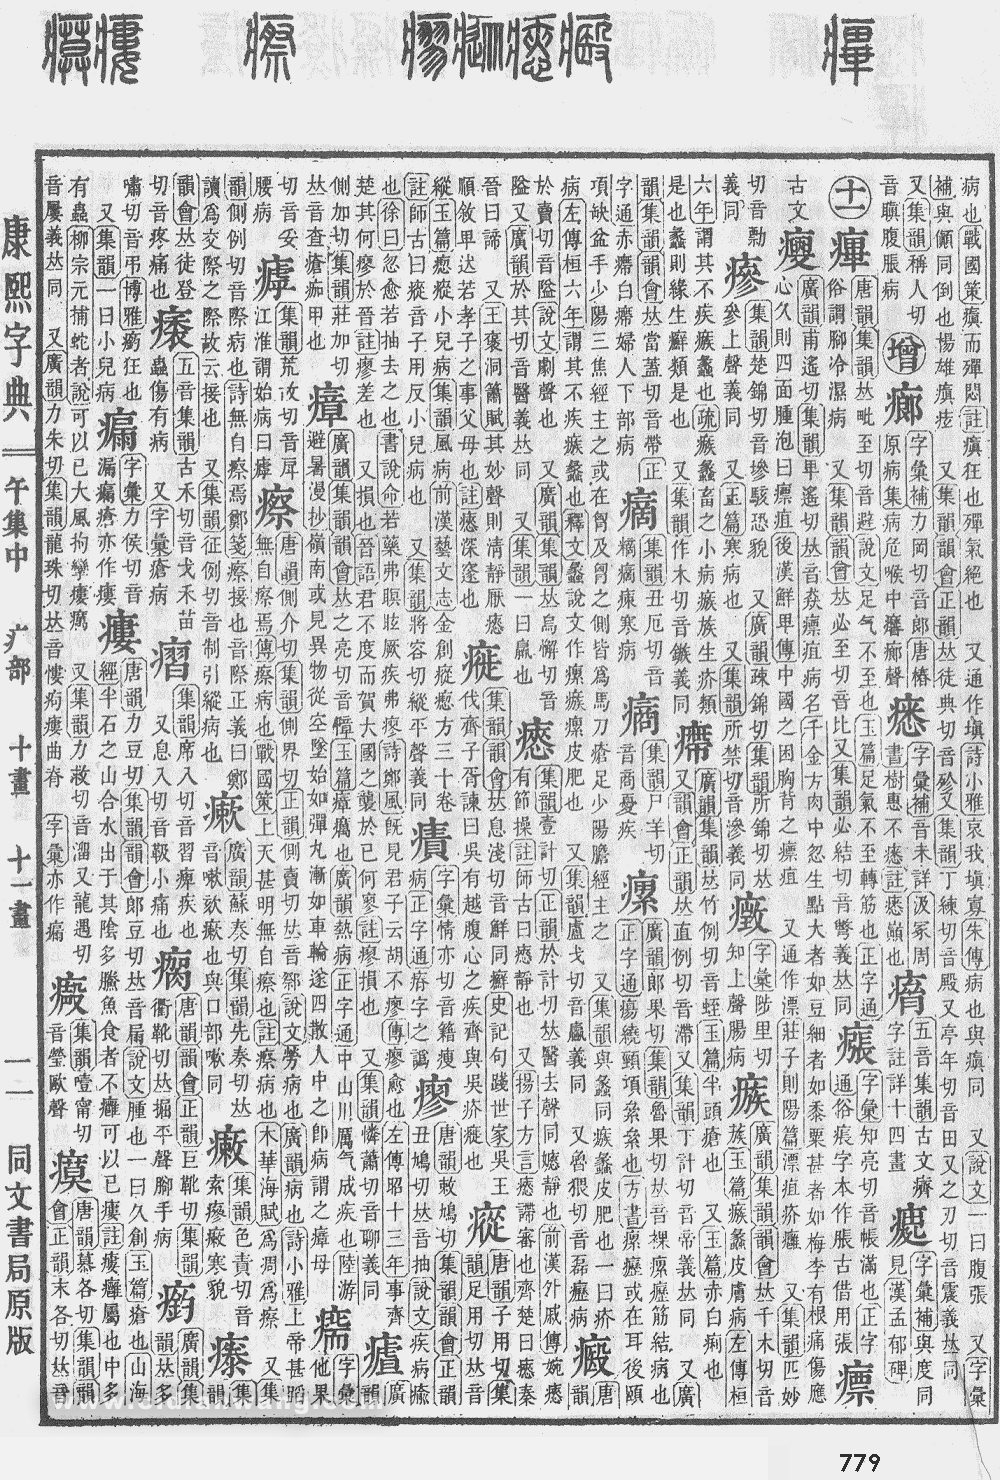 病也戰國策癲而殫悶註瘨狂也殫氣絕也 又通作塡詩小雅哀我塡寡朱傳病也與瘨同 又說文一曰腹張 又字彙
補與傎同倒也揚雄 又集韻韻會正韻𠀤徒典切音殄又集韻丁練切音殿又亭年切音田又之刃切音震義𠀤同
又集韻稱人切
音瞋腹脹病
增
字彙補力岡切音郞唐椿
原病集病危喉中
字彙補音未詳汲冢周
書樹惠不瘱
五音集韻古文
字註詳十四畫
字彙補與度同
見漢孟郁碑
十一
痺
唐韻集韻𠀤毗至切音避說文足气不至也玉篇足氣不至轉筋也正字通
俗謂腳冷濕病 又集韻韻會𠀤必至切音比又集韻必結切音彆義𠀤同
瘬
字彙知亮切音帳滿也正字
通俗痕字本作脹古借用張
瘭
古文
廣韻甫遙切集韻𤰞遙切𠀤音猋瘭疽病名千金方肉中忽生點大者如豆細者如黍粟甚者如梅李有根痛傷應
心久則四面腫泡曰瘭疽後漢鮮𤰞傳中國之困胸背之瘭疽 又通作漂莊子則陽篇漂疽疥癰 又集韻匹妙
切音勡
義同
瘮
集韻楚錦切音墋駭恐貌 又廣韻疎錦切集韻所錦切𠀤
參上聲義同 又玉篇寒病也 又集韻所禁切音滲義同
字彙陟里切
知上聲腸病
瘯
廣韻集韻韻會𠀤千木切音
蔟玉篇瘯蠡皮膚病左傳桓
六年謂其不疾瘯蠡也疏瘯蠡畜之小病瘯族生疥類
是也蠡則緣生癬類是也 又集韻作木切音鏃義同
瘹
廣韻集韻𠀤竹例切音 玉篇半頭瘡也 又玉篇赤白痢也 又廣
韻集韻韻會𠀤當蓋切音帶正
字通赤瘹白瘹婦人下部病
集韻丑厄切音
瘑瘑𤷁寒病
瘑
集韻尸羊切
音商憂疾
瘰
廣韻郞果切集韻魯果切𠀤音裸瘰癧筋結病也
正字通瘍繞頸項纍纍也方書瘰癧或在耳後頤
項缺盆手少陽三焦經主之或在胷及胷之側皆爲馬刀瘡足少陽膽經主之 又集韻與蠡同瘯蠡皮肥也一曰疥
病左傳桓六年謂其不疾瘯蠡也釋文蠡說文作瘰瘯瘰皮肥也 又集韻盧戈切音臝義同 又魯猥切音磊癧病
唐韻
於賣切音隘說文劇聲也 又廣韻集韻𠀤烏懈切音
隘又廣韻於其切音醫義𠀤同 又集韻一曰羸也
瘱
集韻壹計切正韻於計切𠀤醫去聲同嫕靜也前漢外戚傳婉瘱
有節操註師古曰瘱靜也 又揚子方言瘱諦審也齊楚曰瘱秦
晉曰諦 又王襃洞簫賦其妙聲則淸靜厭瘱
順敘𤰞迖若孝子之事父母也註瘱深邃也
𤷗
集韻韻會𠀤息淺切音鮮同癬史記句踐世家吳王
伐齊子胥諫曰吳有越腹心之疾齊與吳疥𤷗也
瘲
唐韻子用切集
韻足用切𠀤音
縱玉篇瘛瘲小兒病集韻風病前漢藝文志金創瘲瘛方三十卷
註師古曰瘲音子用反小兒病也 又集韻將容切縱平聲義同
字彙情亦切音籍瘦
病正字通瘠字之譌
瘳
唐韻敕鳩切集韻韻會正韻
丑鳩切𠀤音抽說文疾病瘉
也徐曰忽愈若抽去之也書說命若藥弗瞑眩厥疾弗瘳詩鄭風旣見君子云胡不瘳傳瘳愈也左傳昭十三年事齊
楚其何瘳於晉註瘳差也 又損也晉語君不度而賀大國之襲於已何瘳註瘳損也 又集韻憐蕭切音聊義同
廣韻
側加切集韻莊加切
𠀤音査瘡痂甲也
瘴
廣韻集韻韻會𠀤之亮切音障玉篇瘴癘也廣韻熱病正字通中山川厲气成疾也陸游
避暑漫抄嶺南或見異物從空墜始如彈丸漸如車輪遂四散人中之卽病謂之瘴母
字彙
他果
切音妥
腰病
集韻荒故切音戽
江淮謂始病曰
瘵
唐韻側介切集韻側界切正韻側賣切𠀤音 說文勞病也廣韻病也詩小雅上帝甚蹈
無自瘵焉傳瘵病也戰國策上天甚明無自瘵也註瘵病也木華海賦爲凋爲瘵 又集
韻側例切音際病也詩無自瘵焉鄭箋瘵接也音際正義曰鄭
讀爲交際之際故云接也 又集韻征例切音制引縱病也
瘶
廣韻蘇奏切集韻先奏切𠀤
音嗽欬瘶也與口部嗽同
集韻色責切音
索瘮 寒貌
集
韻
韻會𠀤徒登
切音疼痛也
五音集韻古禾切音戈禾苗
蟲傷有病 又字彙瘡病
集韻席入切音習痺疾也
又息入切音靸小痛也
唐韻韻會正韻巨靴切集韻
衢靴切𠀤掘平聲腳手病
廣韻集
韻𠀤多
嘯切音弔博雅𤺄狂也
又集韻一曰小兒病
瘺
字彙力侯切音
漏瘺瘡亦作瘻
瘻
唐韻力豆切集韻韻會郞豆切𠀤音屚說文腫也一曰久創玉篇瘡也山海
經半石之山合水出于其陰多 魚食者不癰可以已瘻註瘻癰屬也中多
有蟲柳宗元捕蛇者說可以已大風拘攣瘻癘 又集韻力救切音溜又龍遇切
音屢義𠀤同 又廣韻力朱切集韻龍珠切𠀤音慺痀瘻曲脊 字彙亦作瘺
集韻 甯切
音瑩 聲
瘼
唐韻慕各切集韻韻
會正韻末各切𠀤音
康熙字典
午集中
疒部
十畫
十一畫
一二
同文書局原版
779